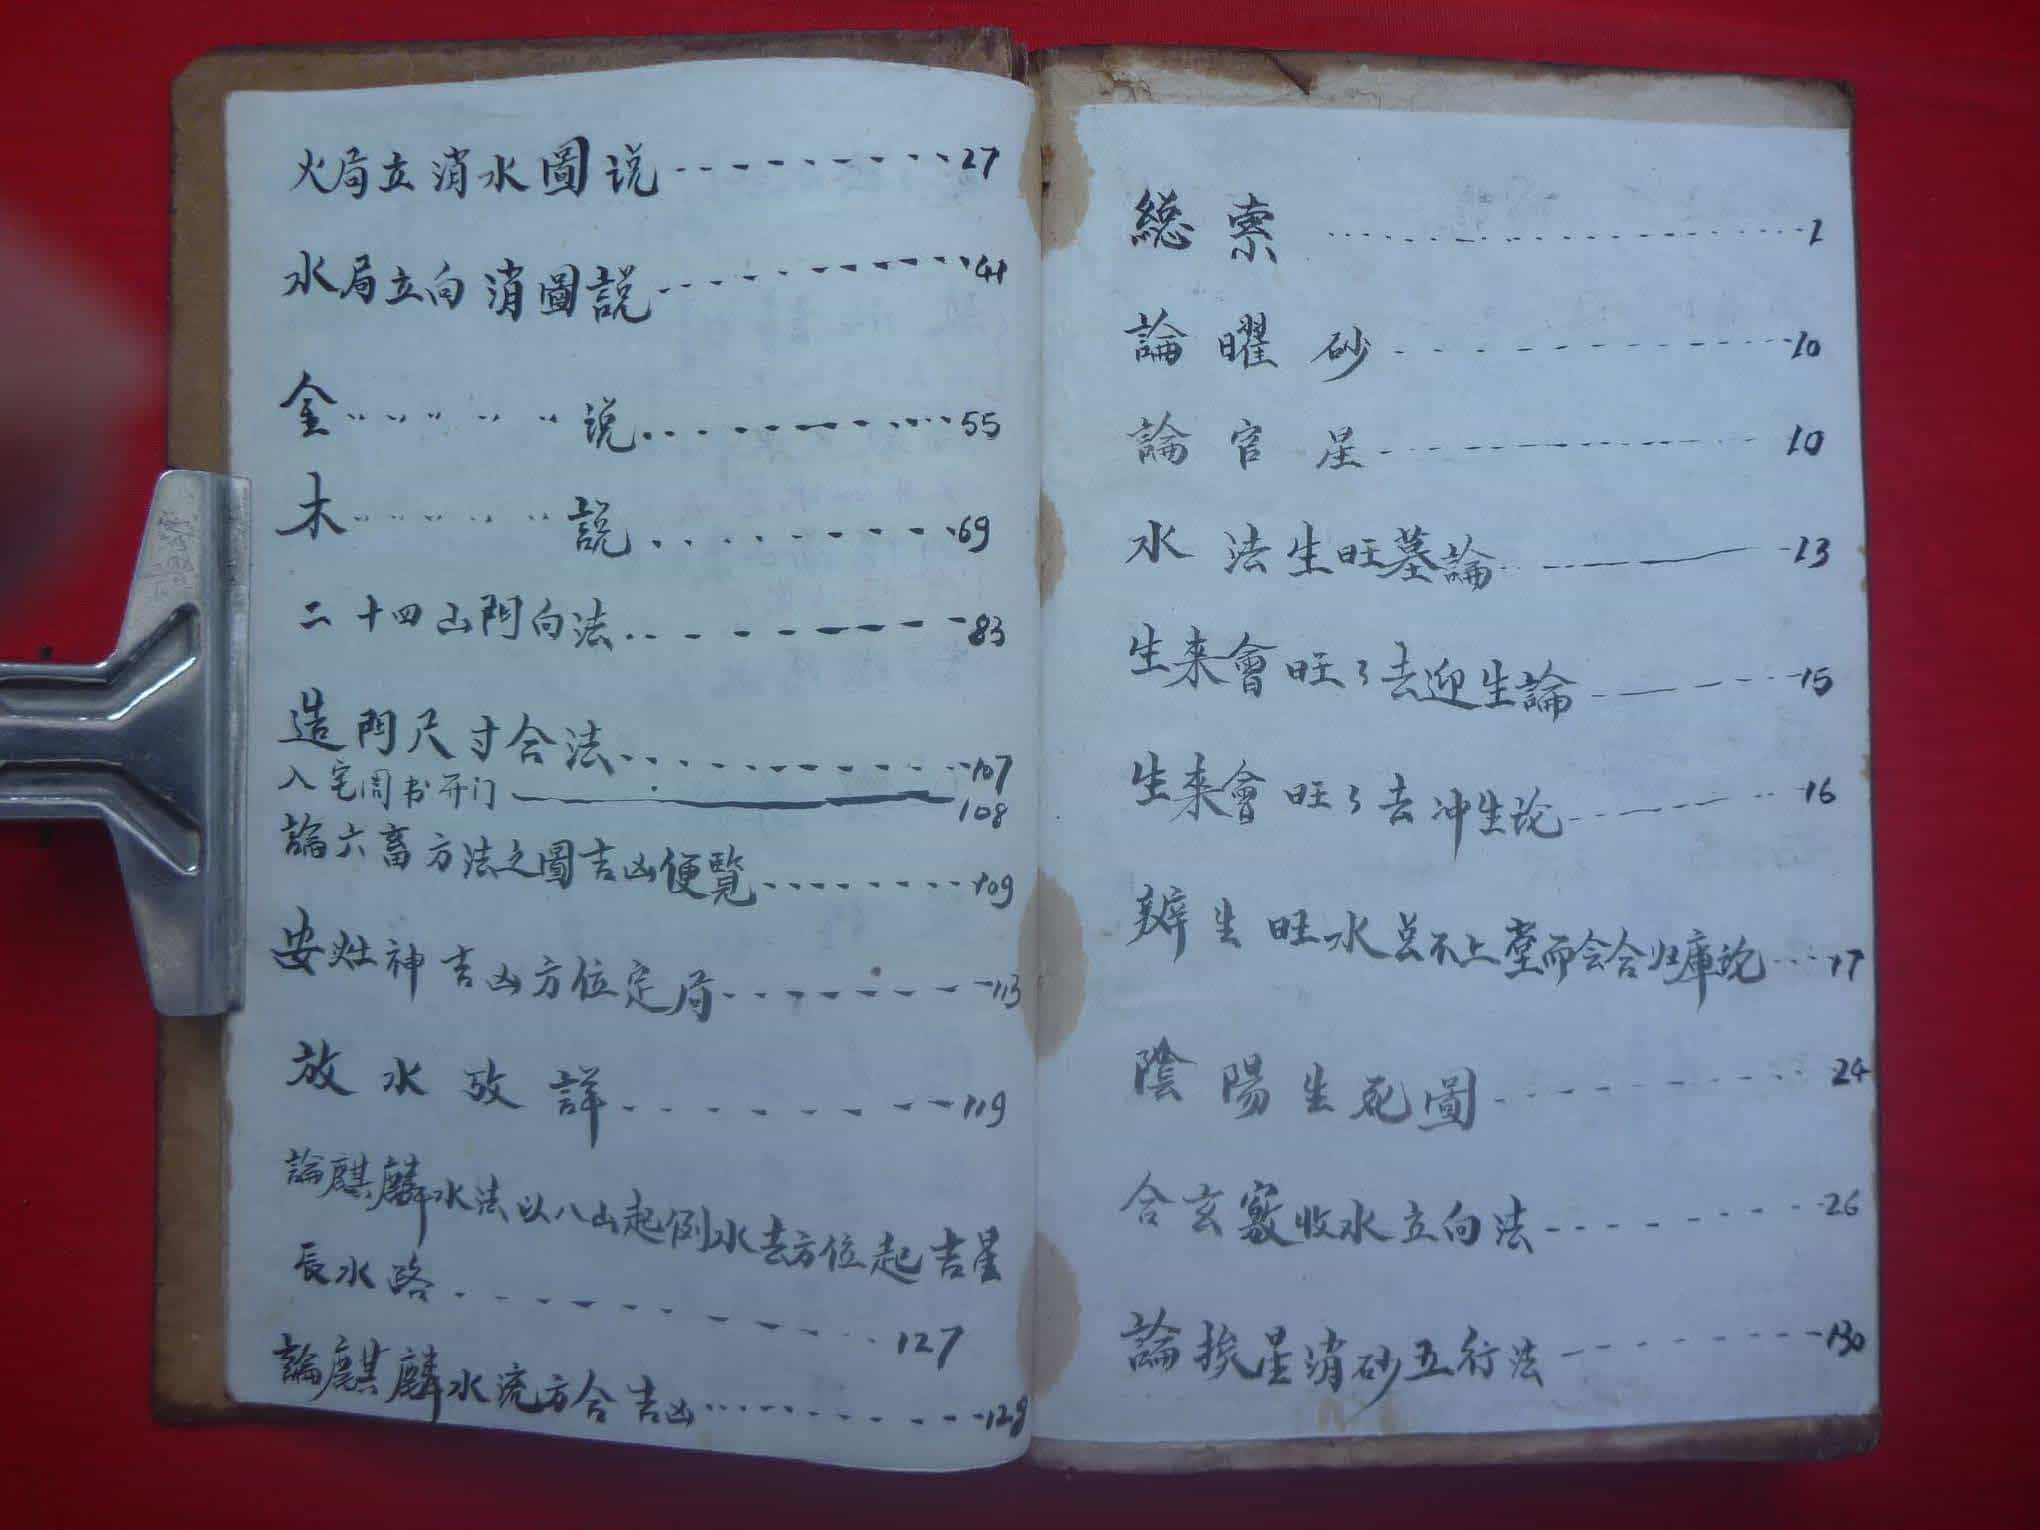 火局立消水圖说 27
水局立向消圖説 41
金〃〃〃〃〃说 55
木〃〃〃〃〃説 69
二十四山門向法 83
造門尺寸合法 107
入宅周书开门 108
論六畜方法之圖吉凶便覧 109
安灶神吉凶方位定局 113
放水攷詳 119
論麒麟水法以八山起例水去方位起吉星
長水路 127
論麒麟水流方合吉凶 128
總索 1
論曜砂 10
論官星 10
水法生旺墓論 13
生来會旺々去迎生論 15
生来會旺々去冲生论 16
辨生旺水总不上堂而会合归庫论 17
陰陽生死圖 24
合玄竅收水立向法 26
論挨星消砂五行法 130